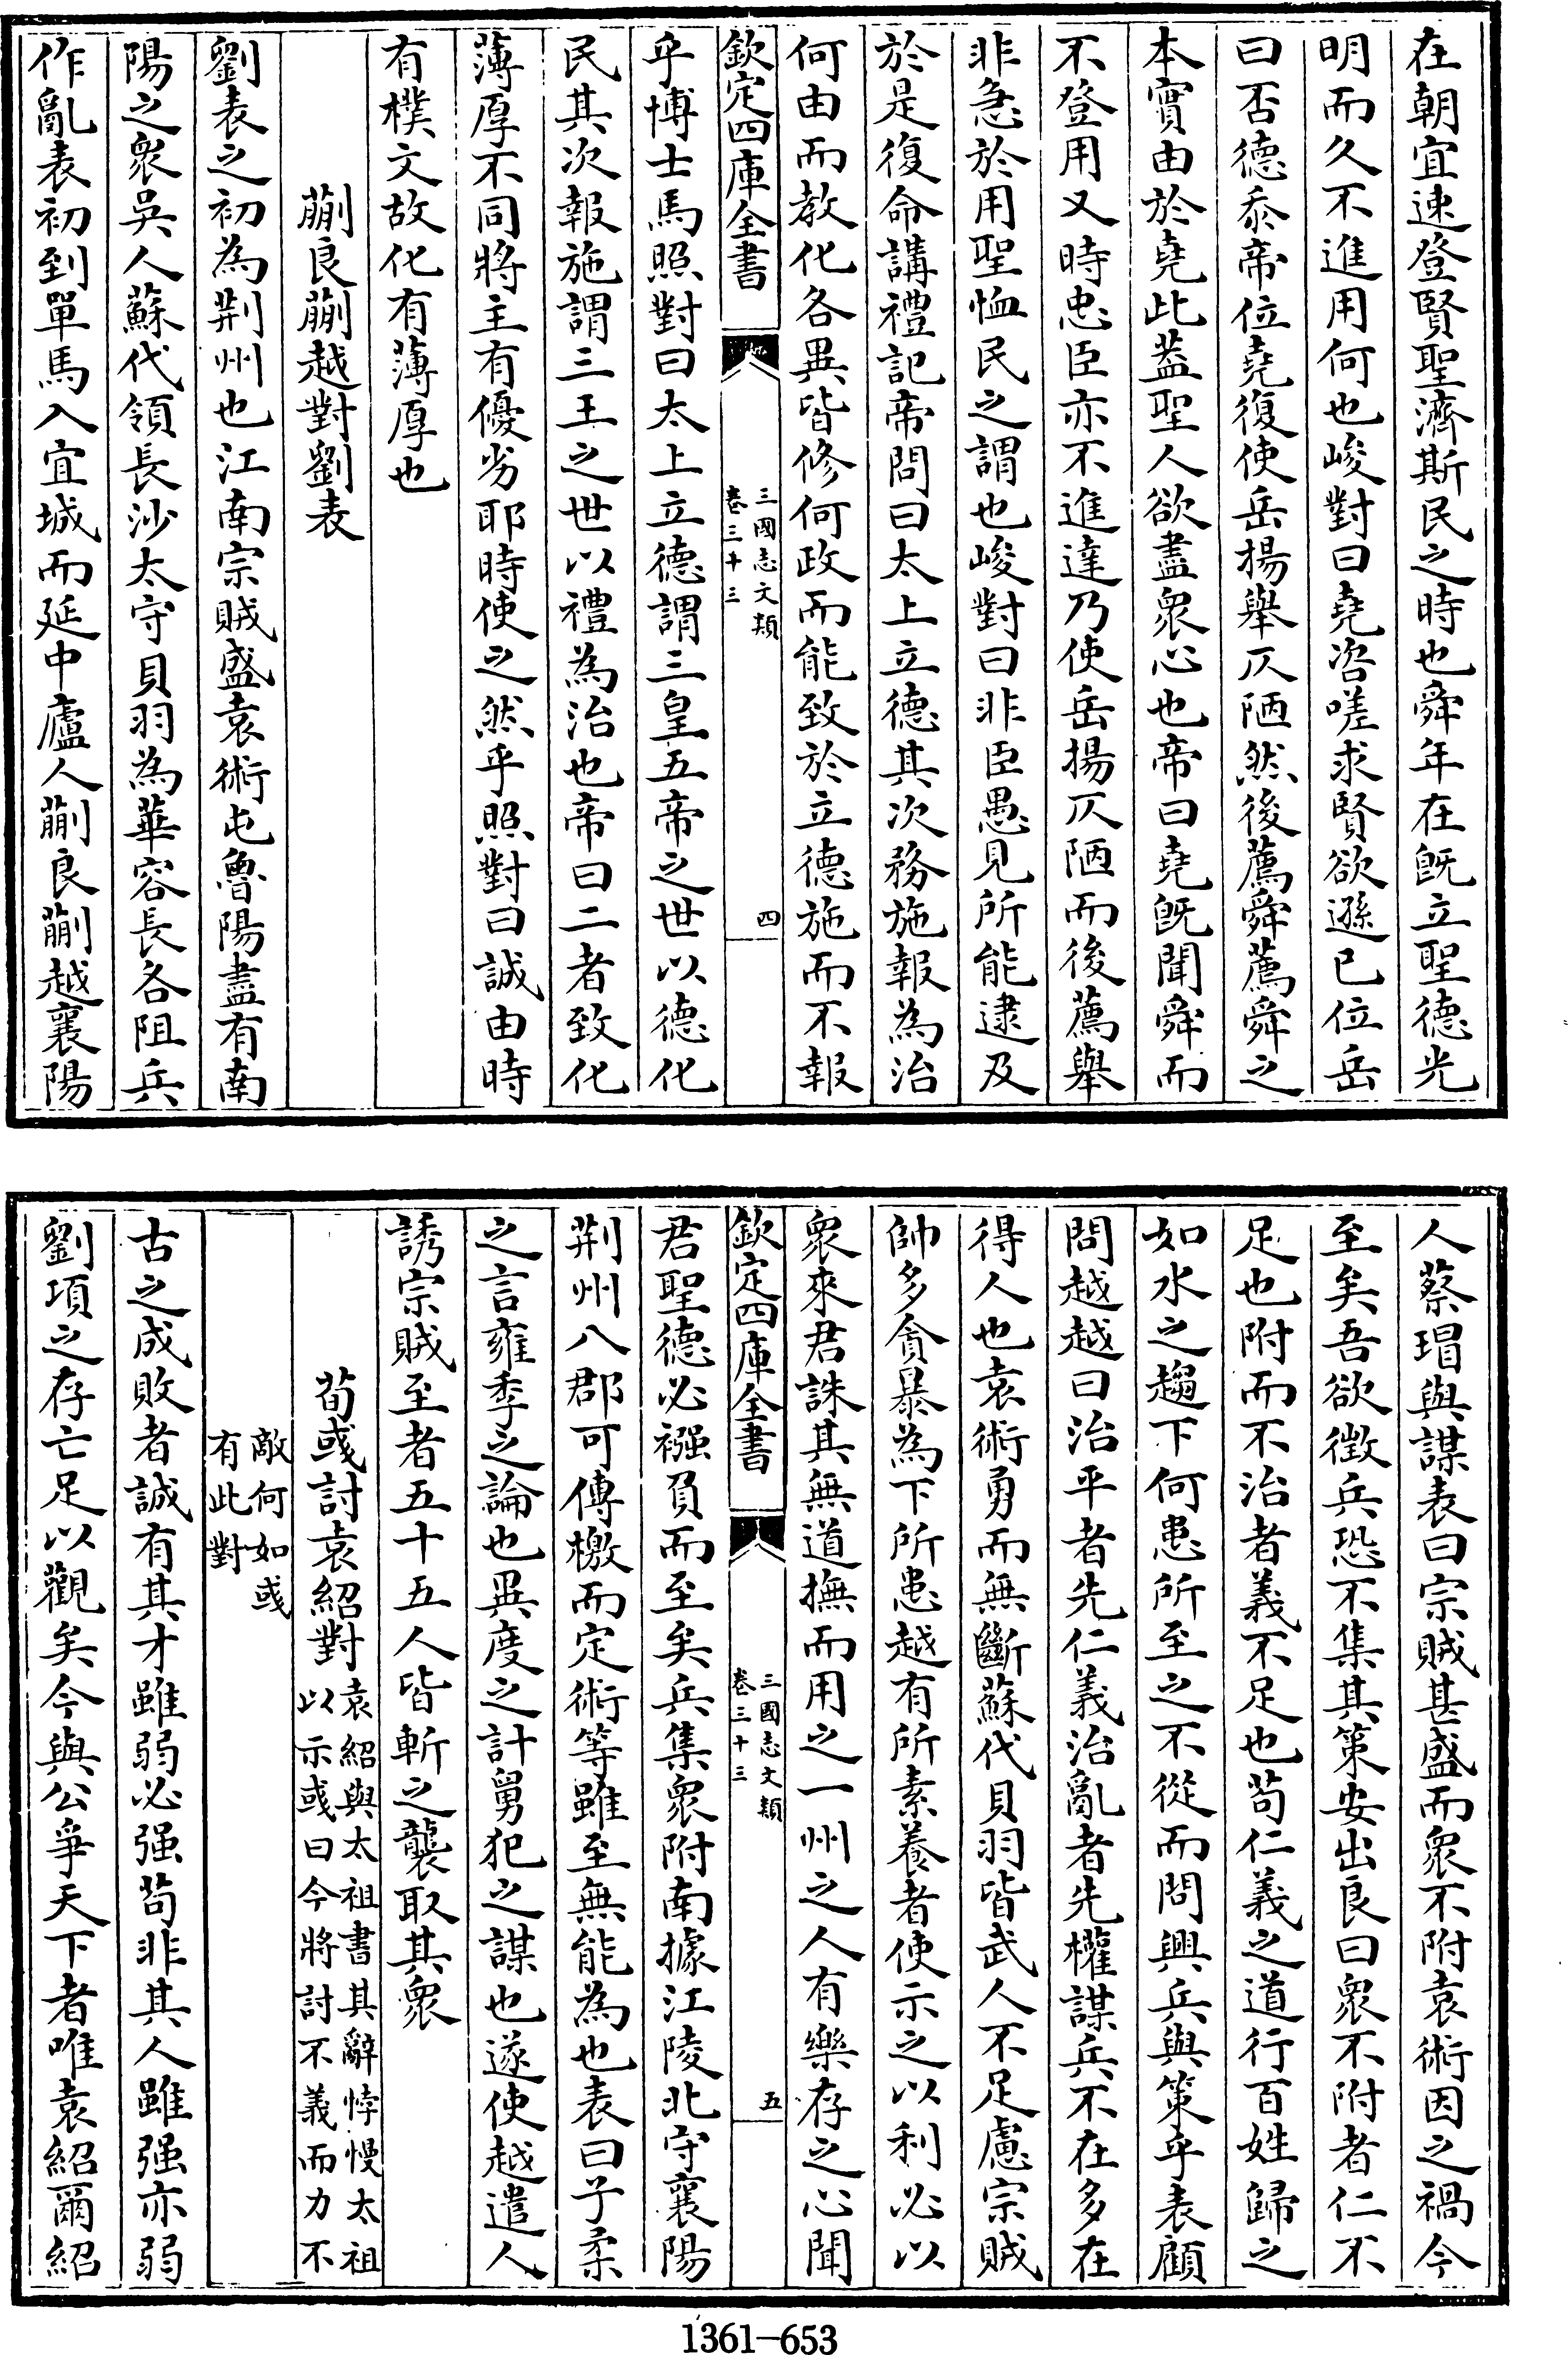 在朝宜速登賢聖濟斯民之時也舜年在既立聖德光
明而久不進用何也峻對曰堯咨嗟求賢欲遜已位岳
曰否德忝帝位堯復使岳揚舉仄陋然後薦舜薦舜之
本實由於堯此葢聖人欲盡衆心也帝曰堯既聞舜而
不登用又時忠臣亦不進達乃使岳揚仄陋而後薦舉
非急於用聖恤民之謂也峻對曰非臣愚見所能逮及
於是復命講禮記帝問曰太上立德其次務施報為治
何由而教化各異皆修何政而能致於立德施而不報
欽定四庫全書
三國志文類
卷三十三
四
乎博士馬照對曰太上立德謂三皇五帝之世以德化
民其次報施謂三王之世以禮為治也帝曰二者致化
薄厚不同將主有優劣耶時使之然乎照對曰誠由時
有樸文故化有薄厚也
蒯良蒯越對劉表
劉表之初為荆州也江南宗賊盛袁術屯魯陽盡有南
陽之衆吳人蘇代領長沙太守貝羽為華容長各阻兵
作亂表初到單馬入宜城而延中廬人蒯良蒯越襄陽
人蔡瑁與謀表曰宗賊甚盛而衆不附袁術因之禍今
至矣吾欲徵兵恐不集其策安出良曰衆不附者仁不
足也附而不治者義不足也茍仁義之道行百姓歸之
如水之趨下何患所至之不從而問興兵與策乎表顧
問越越曰治平者先仁義治亂者先權謀兵不在多在
得人也袁術勇而無斷蘇代貝羽皆武人不足慮宗賊
帥多貪暴為下所患越有所素養者使示之以利必以
衆來君誅其無道撫而用之一州之人有樂存之心聞
欽定四庫全書
三國志文類
卷三十三
五
君聖德必襁負而至矣兵集衆附南據江陵北守襄陽
荆州八郡可傳檄而定術等雖至無能為也表曰子柔
之言雍季之論也異度之計舅犯之謀也遂使越遣人
誘宗賊至者五十五人皆斬之襲取其衆
荀彧討袁紹對袁紹與太祖書其辭悖慢太祖
以示彧曰今將討不義而力不
敵何如彧
有此對
古之成敗者誠有其才雖弱必强茍非其人雖强亦弱
劉項之存亡足以觀矣今與公爭天下者唯袁紹爾紹
1361-653